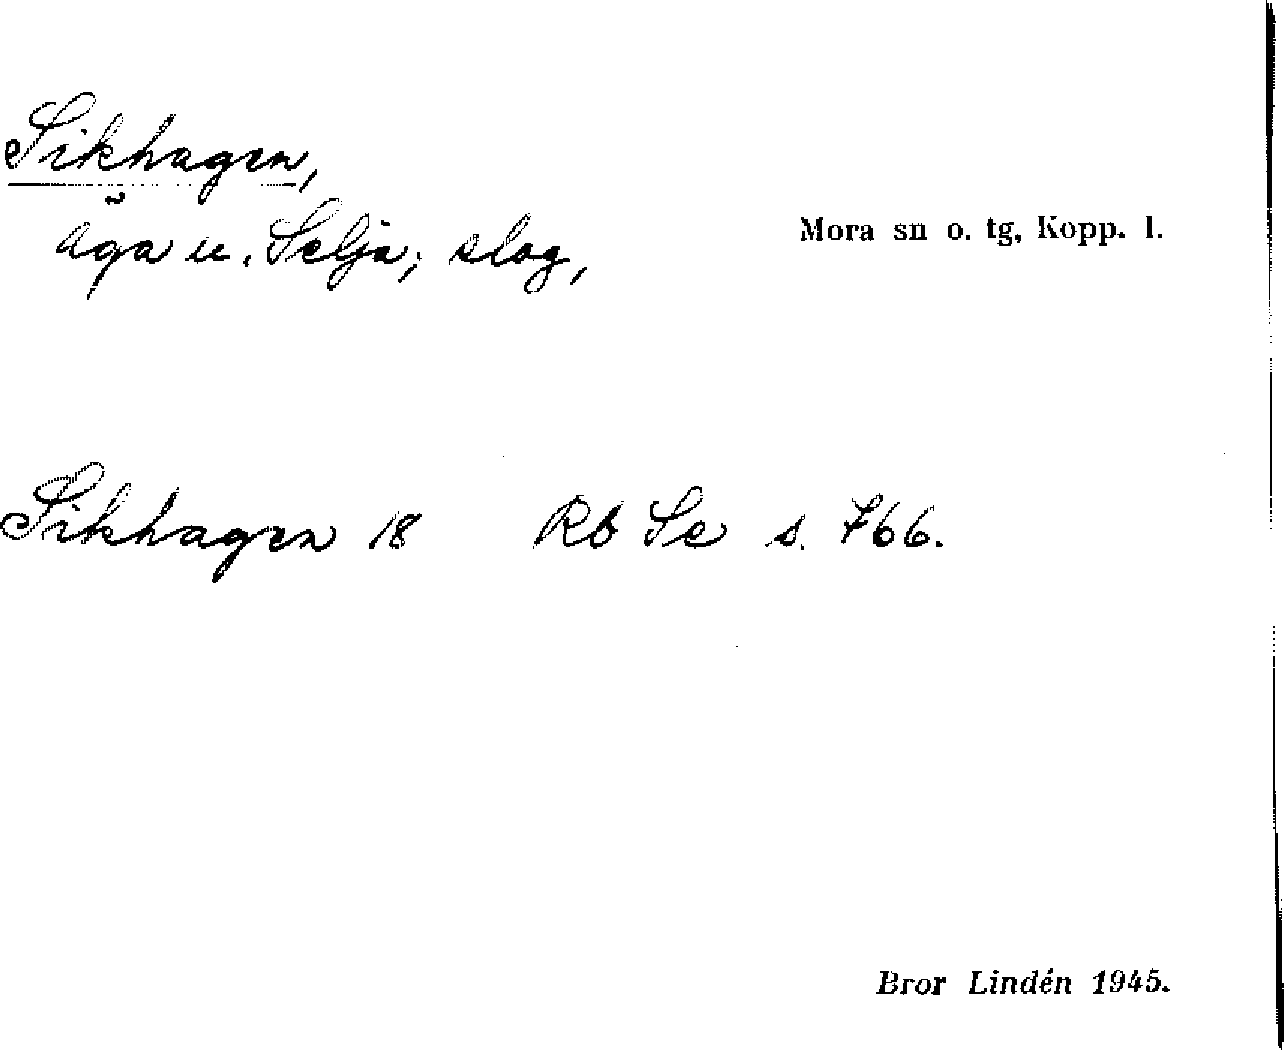 Sikhagen,
äga u. Selja; slog,
Mora sn o. tg, Kopp. l.
Sikhagen 18 Rb Se s. 766.
Bror Lindén 1945.